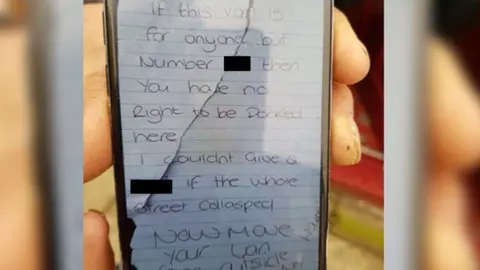 If this van is
for anyone but
Number then
You have no
Right to be Parked
here
I couldnt Give a
If the whole
Street Collasped
Now Move
Your Van
outside